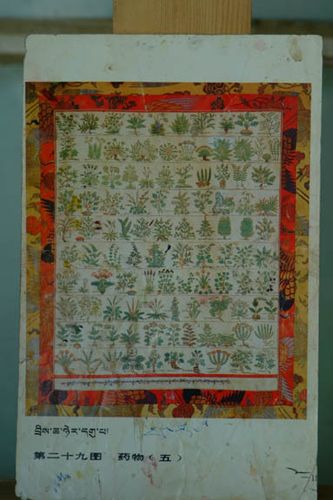 བྲིས་ཆ་ཉེར་དགུ་པ།
第二十九图 药物(五)